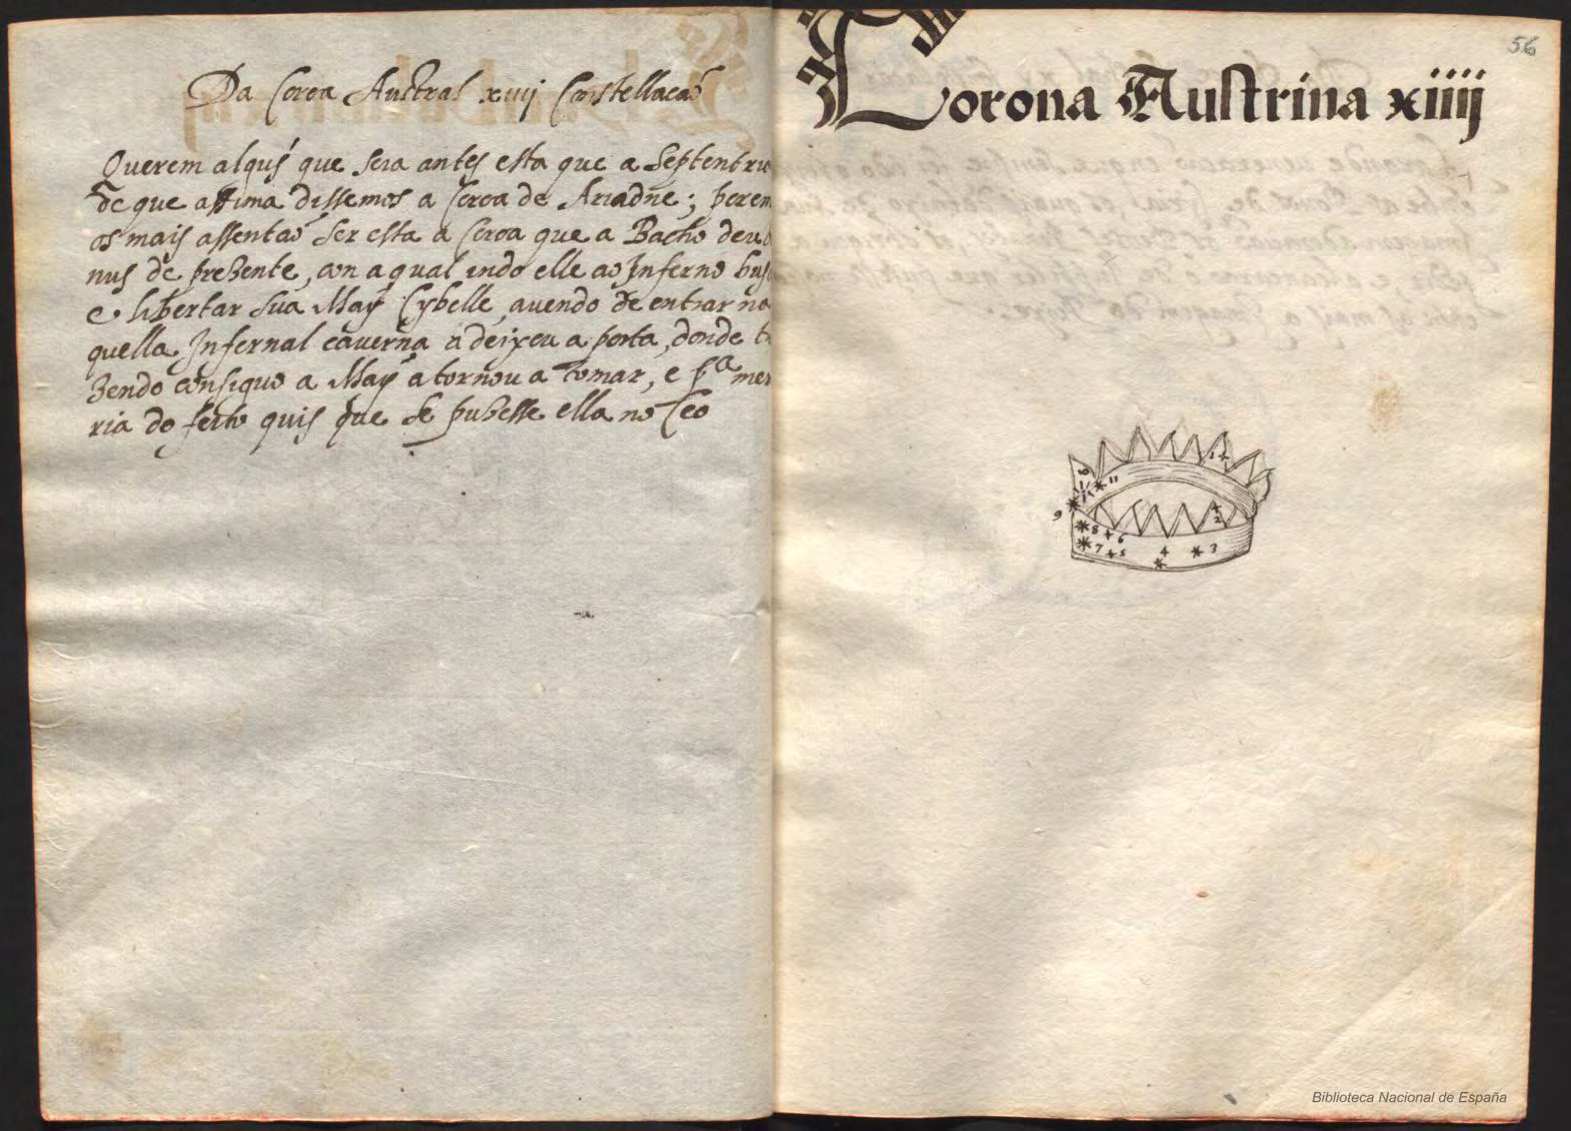 Da Coroa Austral xiiij Constellacaõ
Querem algũs que seia antes esta que a Septentrio
de que assima dissemos a Coroa de Ariadne; porem
os mais assentaõ ser esta a Coroa que a Bacho deu
nus de preZente, con a qual indo elle ao Inferno bus
e libertar sua May Cybelle, auendo de entrar na
quella Infernal cauerna a deixou a porta, donde t
Zendo consiguo a May a tornou a tomar, e pª mer
ria do feito quis que se puZesse ella no Ceo
56
Corona Austrina xiiij
1
2
3
4
5
6
7
8
9
11
Biblioteca Nacional de España